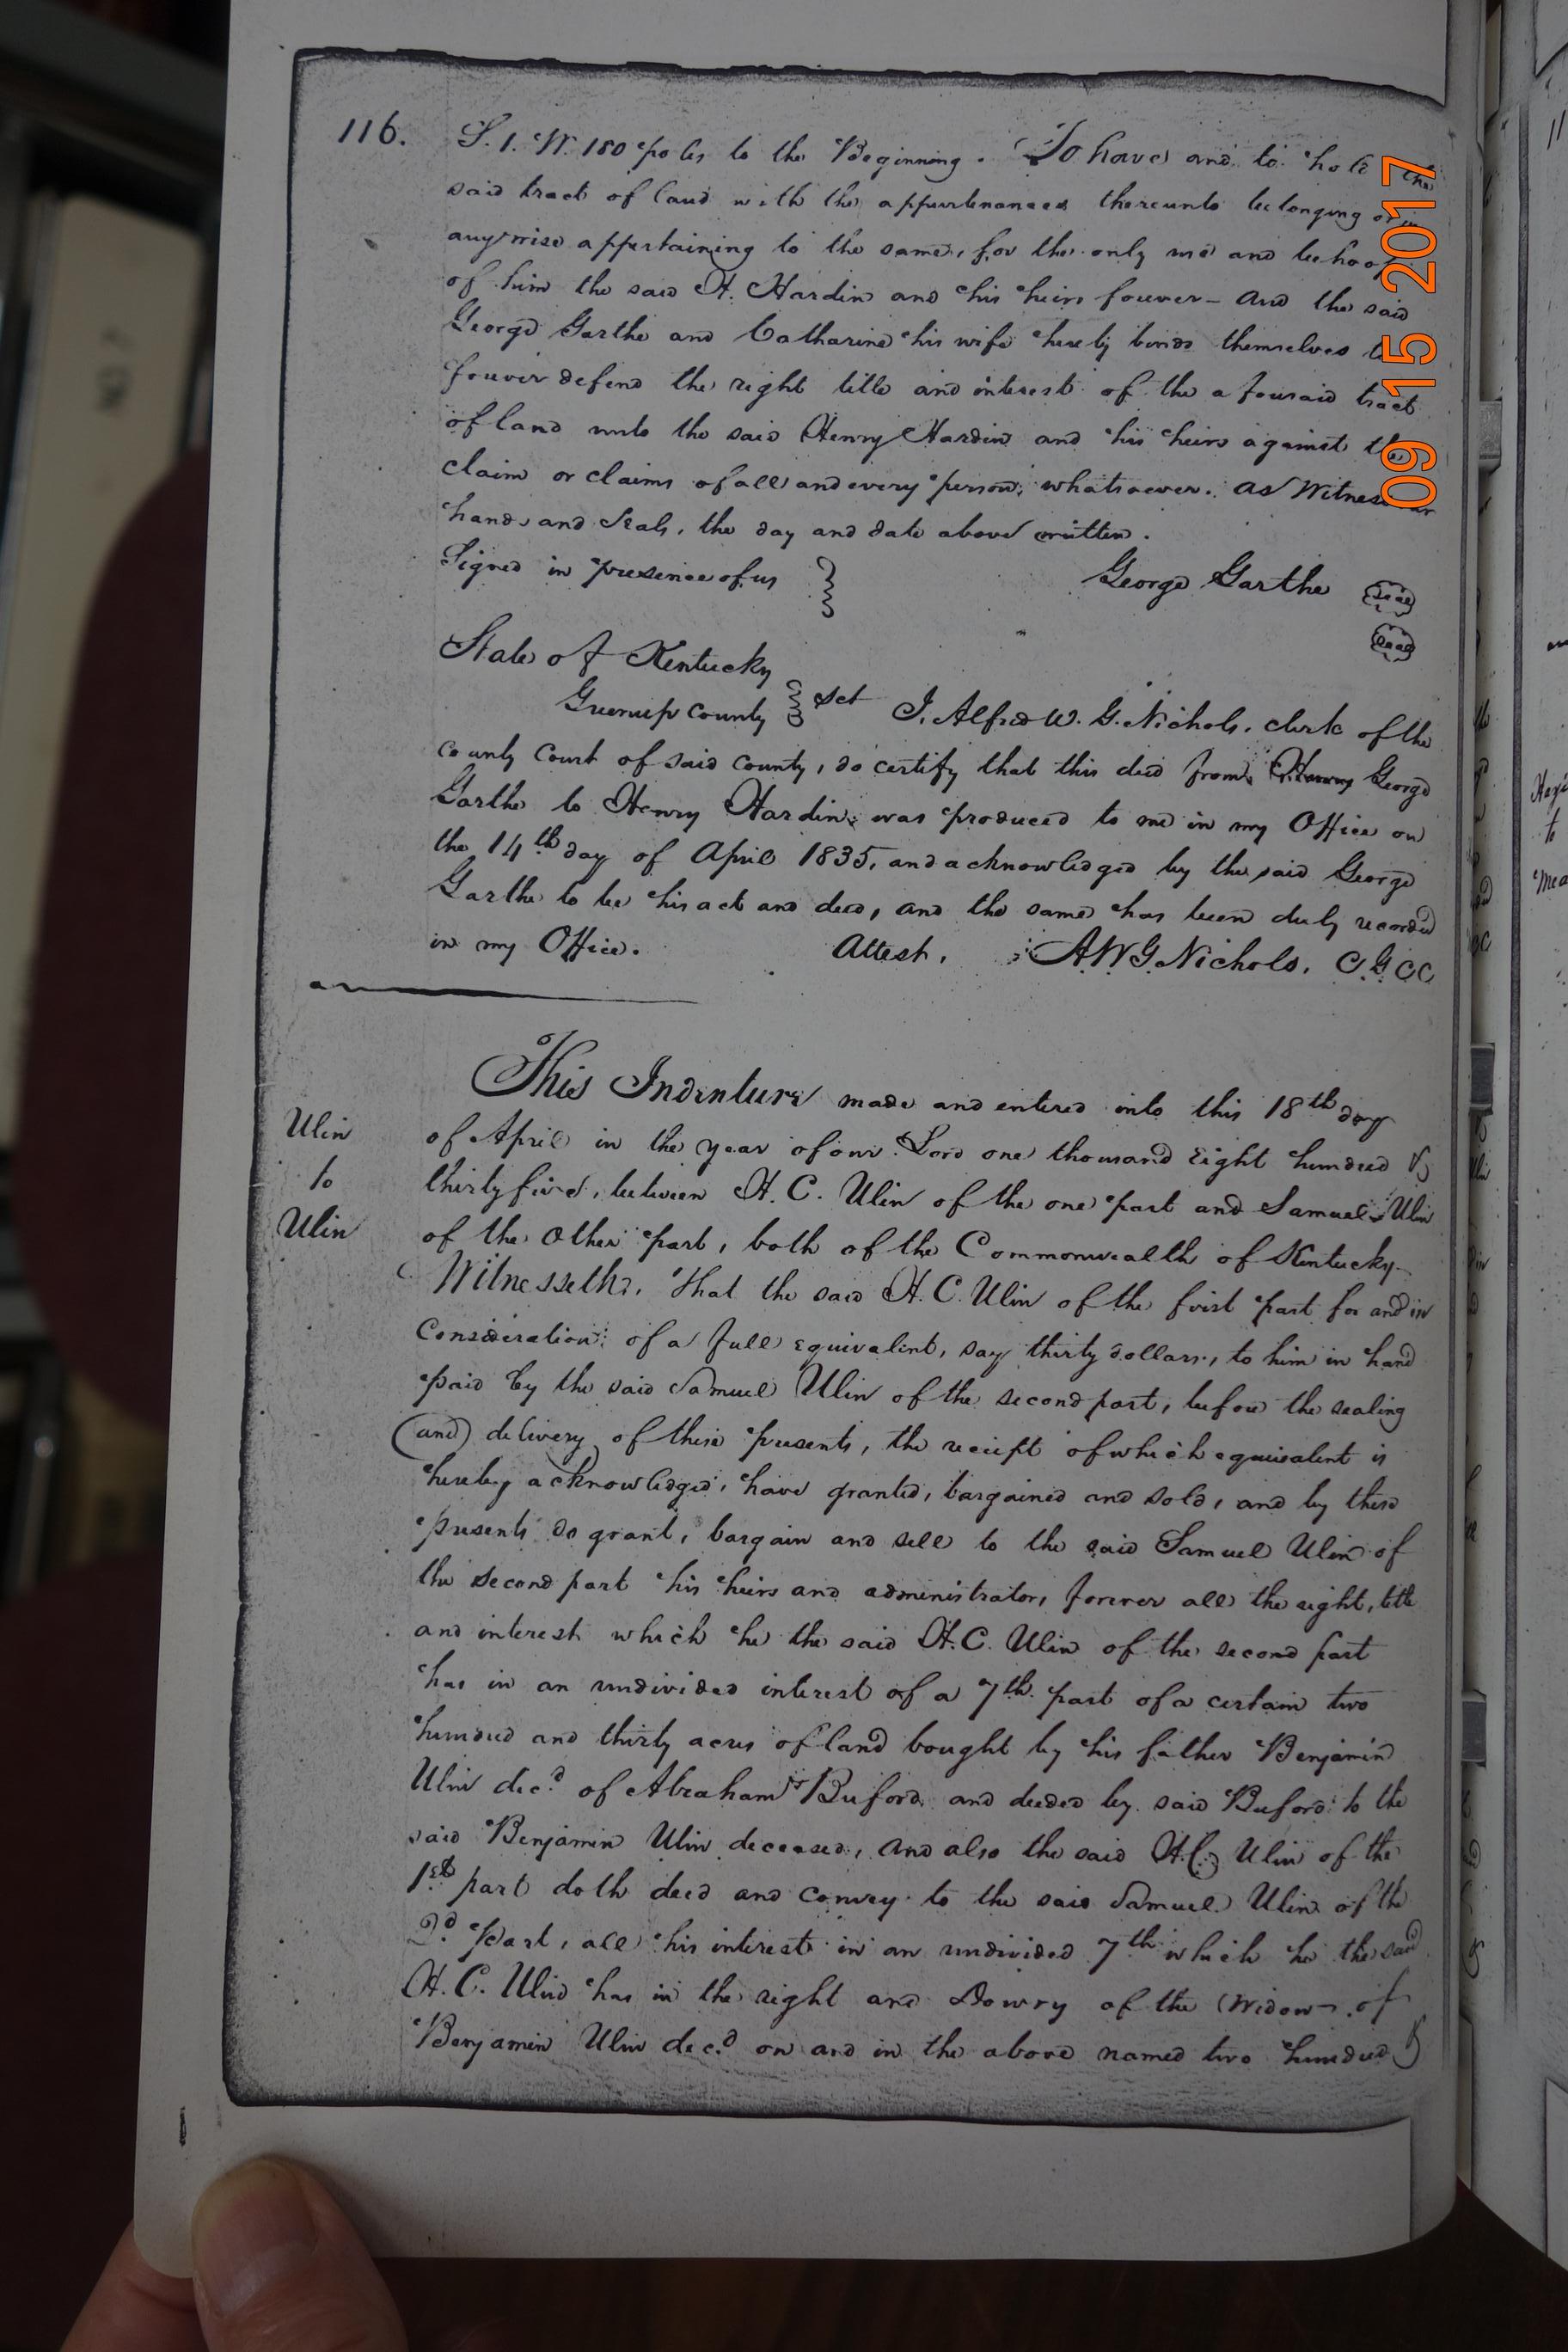 116.
S. 1. W. 180 poles to the Beginning. To have and to hold the
said tract of land with the appurtenances thereunto belonging or in
anywise appertaining to the same, for the only use and behoof
of him the said H. Hardin and his heirs forever - And the said
George Garthe and Catharine his wife hereby binds themselves to
forever defend the right title and interest of the aforesaid tract
of land unto the said Henry Hardin and his heirs against the
claim or claims of all and every person, whatsoever. As Witness our
hands and Seals, the day and date above written.
Signed in presence of us
George Garthe Seal
Seal
State of Kentucky
Greenup County Sct I, Alfred W. G. Nichols, clerk of the
county Court of said county, do certify that this deed from Henry George
Garthe to Henry Hardin, was produced to me in my Office on
the 14th day of April 1835, and acknowledged by the said George
Garthe to be his act and deed, and the same has been duly recorded
in my Office. Attest, A.W.G. Nichols, C.G.C.C
Ulin
to
Ulin
This Indenture made and entered into this 18th day
of April in the year of our Lord one thousand Eight hundred &
thirty five, between H. C. Ulin of the one part and Samuel Ulin
of the Other part, both of the Commonwealth of Kentucky
Witnesseth, that the said H. C. Ulin of the first part for and in
Consideration of a full equivalent, say thirty dollars, to him in hand
paid by the said Samuel Ulin of the second part, before the sealing
(and) delivery of these presents, the receipt of which equivalent is
hereby acknowledged, have granted, bargained and sold, and by these
presents do grant, bargain and sell to the said Samuel Ulin of
the second part his heirs and administrators forever all the right, title
and interest which he the said H. C. Ulin of the second part
has in an undivided interest of a 7th part of a certain two
hundred and thirty acres of land bought by his father Benjamin
Ulin decd of Abraham Buford and deeded by said Buford to the
said Benjamin Ulin deceased, and also the said H. C. Ulin of the
1st part doth deed and convey to the said Samuel Ulin of the
2d part, all his interest in an undivided 7th which he the said
H. C. Ulin has in the right and Dowry of the Widow of
Benjamin Ulin decd on and in the above named two hundred &
09 15 2017